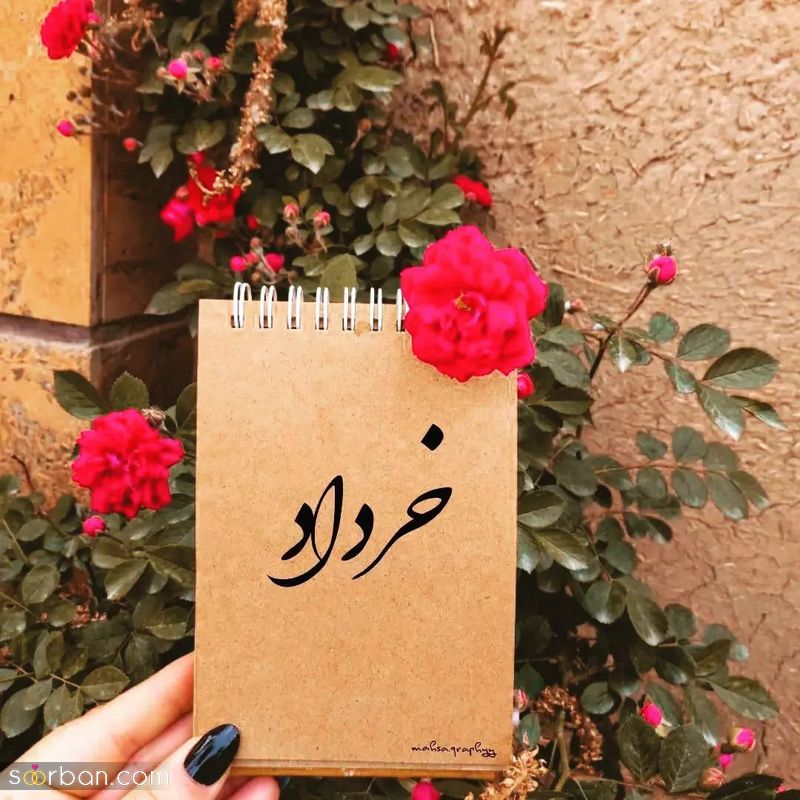 خرداد
mahsagraphyy
soorban.com